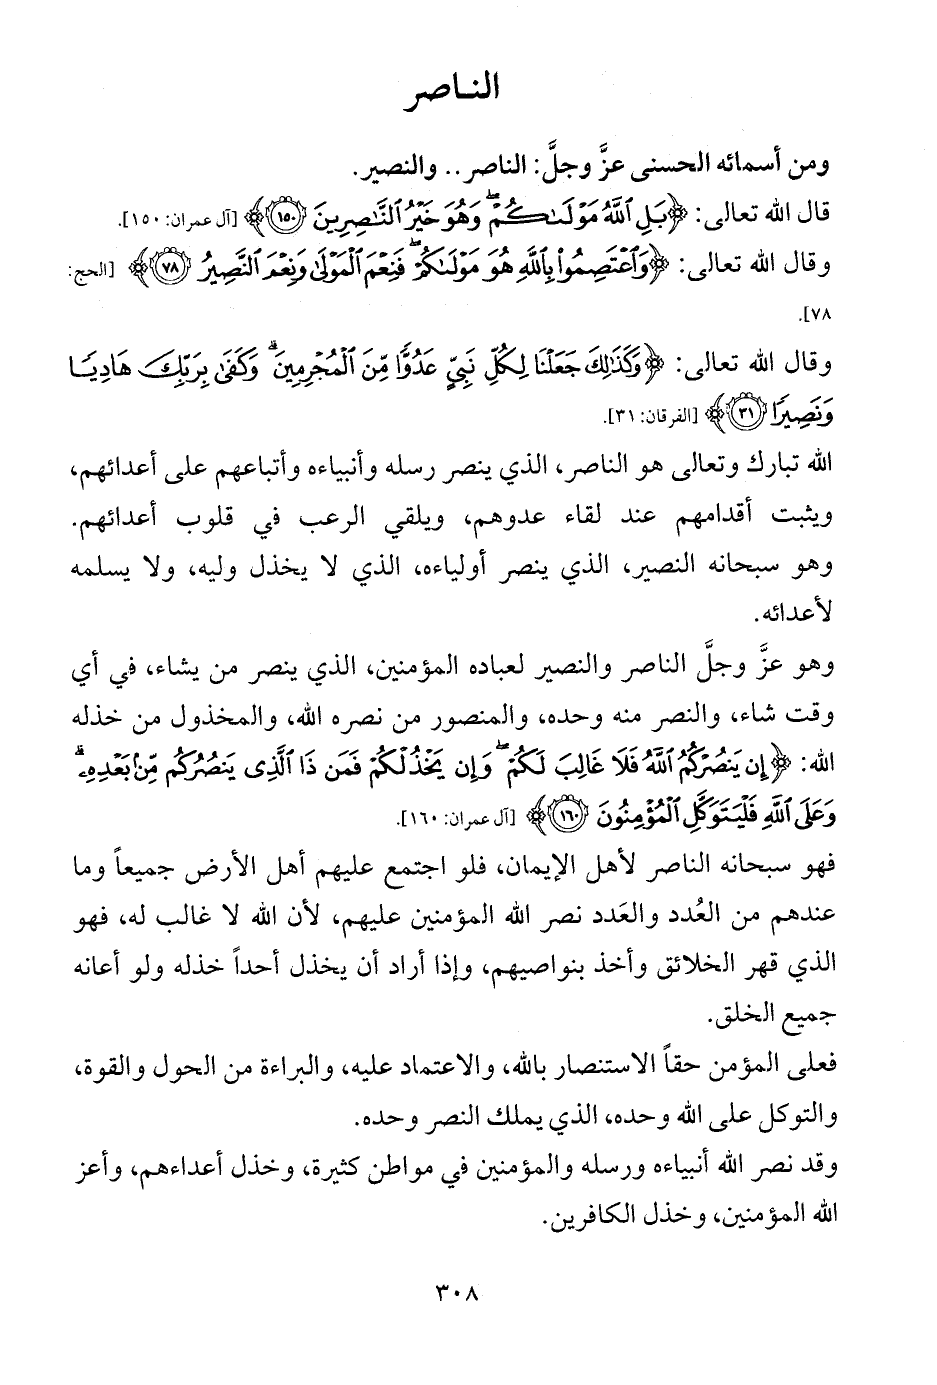 الناصر
ومن أسمائه الحسنى عزَّ وجلَّ: الناصر.. والنصير.
قال الله تعالى: ﴿بَلِ ٱللَّهُ مَوْلَىٰكُمْ ۖ وَهُوَ خَيْرُ ٱلنَّٰصِرِينَ ﴿١٥٠﴾﴾ [آل عمران: ١٥٠].
وقال الله تعالى: ﴿وَٱعْتَصِمُوا۟ بِٱللَّهِ هُوَ مَوْلَىٰكُمْ ۖ فَنِعْمَ ٱلْمَوْلَىٰ وَنِعْمَ ٱلنَّصِيرُ ﴿٧٨﴾﴾ [الحج:
٧٨].
وقال الله تعالى: ﴿وَكَذَٰلِكَ جَعَلْنَا لِكُلِّ نَبِىٍّ عَدُوًّا مِّنَ ٱلْمُجْرِمِينَ ۗ وَكَفَىٰ بِرَبِّكَ هَادِيًا
وَنَصِيرًا ﴿٣١﴾﴾ [الفرقان: ٣١].
الله تبارك وتعالى هو الناصر، الذي ينصر رسله وأنبياءه وأتباعهم على أعدائهم،
ويثبت أقدامهم عند لقاء عدوهم، ويلقي الرعب في قلوب أعدائهم.
وهو سبحانه النصير، الذي ينصر أولياءه، الذي لا يخذل وليه، ولا يسلمه
لأعدائه.
وهو عزَّ وجلَّ الناصر والنصير لعباده المؤمنين، الذي ينصر من يشاء، في أي
وقت شاء، والنصر منه وحده، والمنصور من نصره الله، والمخذول من خذله
الله: ﴿إِن يَنصُرْكُمُ ٱللَّهُ فَلَا غَالِبَ لَكُمْ ۖ وَإِن يَخْذُلْكُمْ فَمَن ذَا ٱلَّذِى يَنصُرُكُم مِّنۢ بَعْدِهِۦ ۗ
وَعَلَى ٱللَّهِ فَلْيَتَوَكَّلِ ٱلْمُؤْمِنُونَ ﴿١٦٠﴾﴾ [آل عمران: ١٦٠].
فهو سبحانه الناصر لأهل الإيمان، فلو اجتمع عليهم أهل الأرض جميعاً وما
عندهم من العُدد والعَدد نصر الله المؤمنين عليهم، لأن الله لا غالب له، فهو
الذي قهر الخلائق وأخذ بنواصيهم، وإذا أراد أن يخذل أحداً خذله ولو أعانه
جميع الخلق.
فعلى المؤمن حقاً الاستنصار بالله، والاعتماد عليه، والبراءة من الحول والقوة،
والتوكل على الله وحده، الذي يملك النصر وحده.
وقد نصر الله أنبياءه ورسله والمؤمنين في مواطن كثيرة، وخذل أعداءهم، وأعز
الله المؤمنين، وخذل الكافرين.
٣٠٨